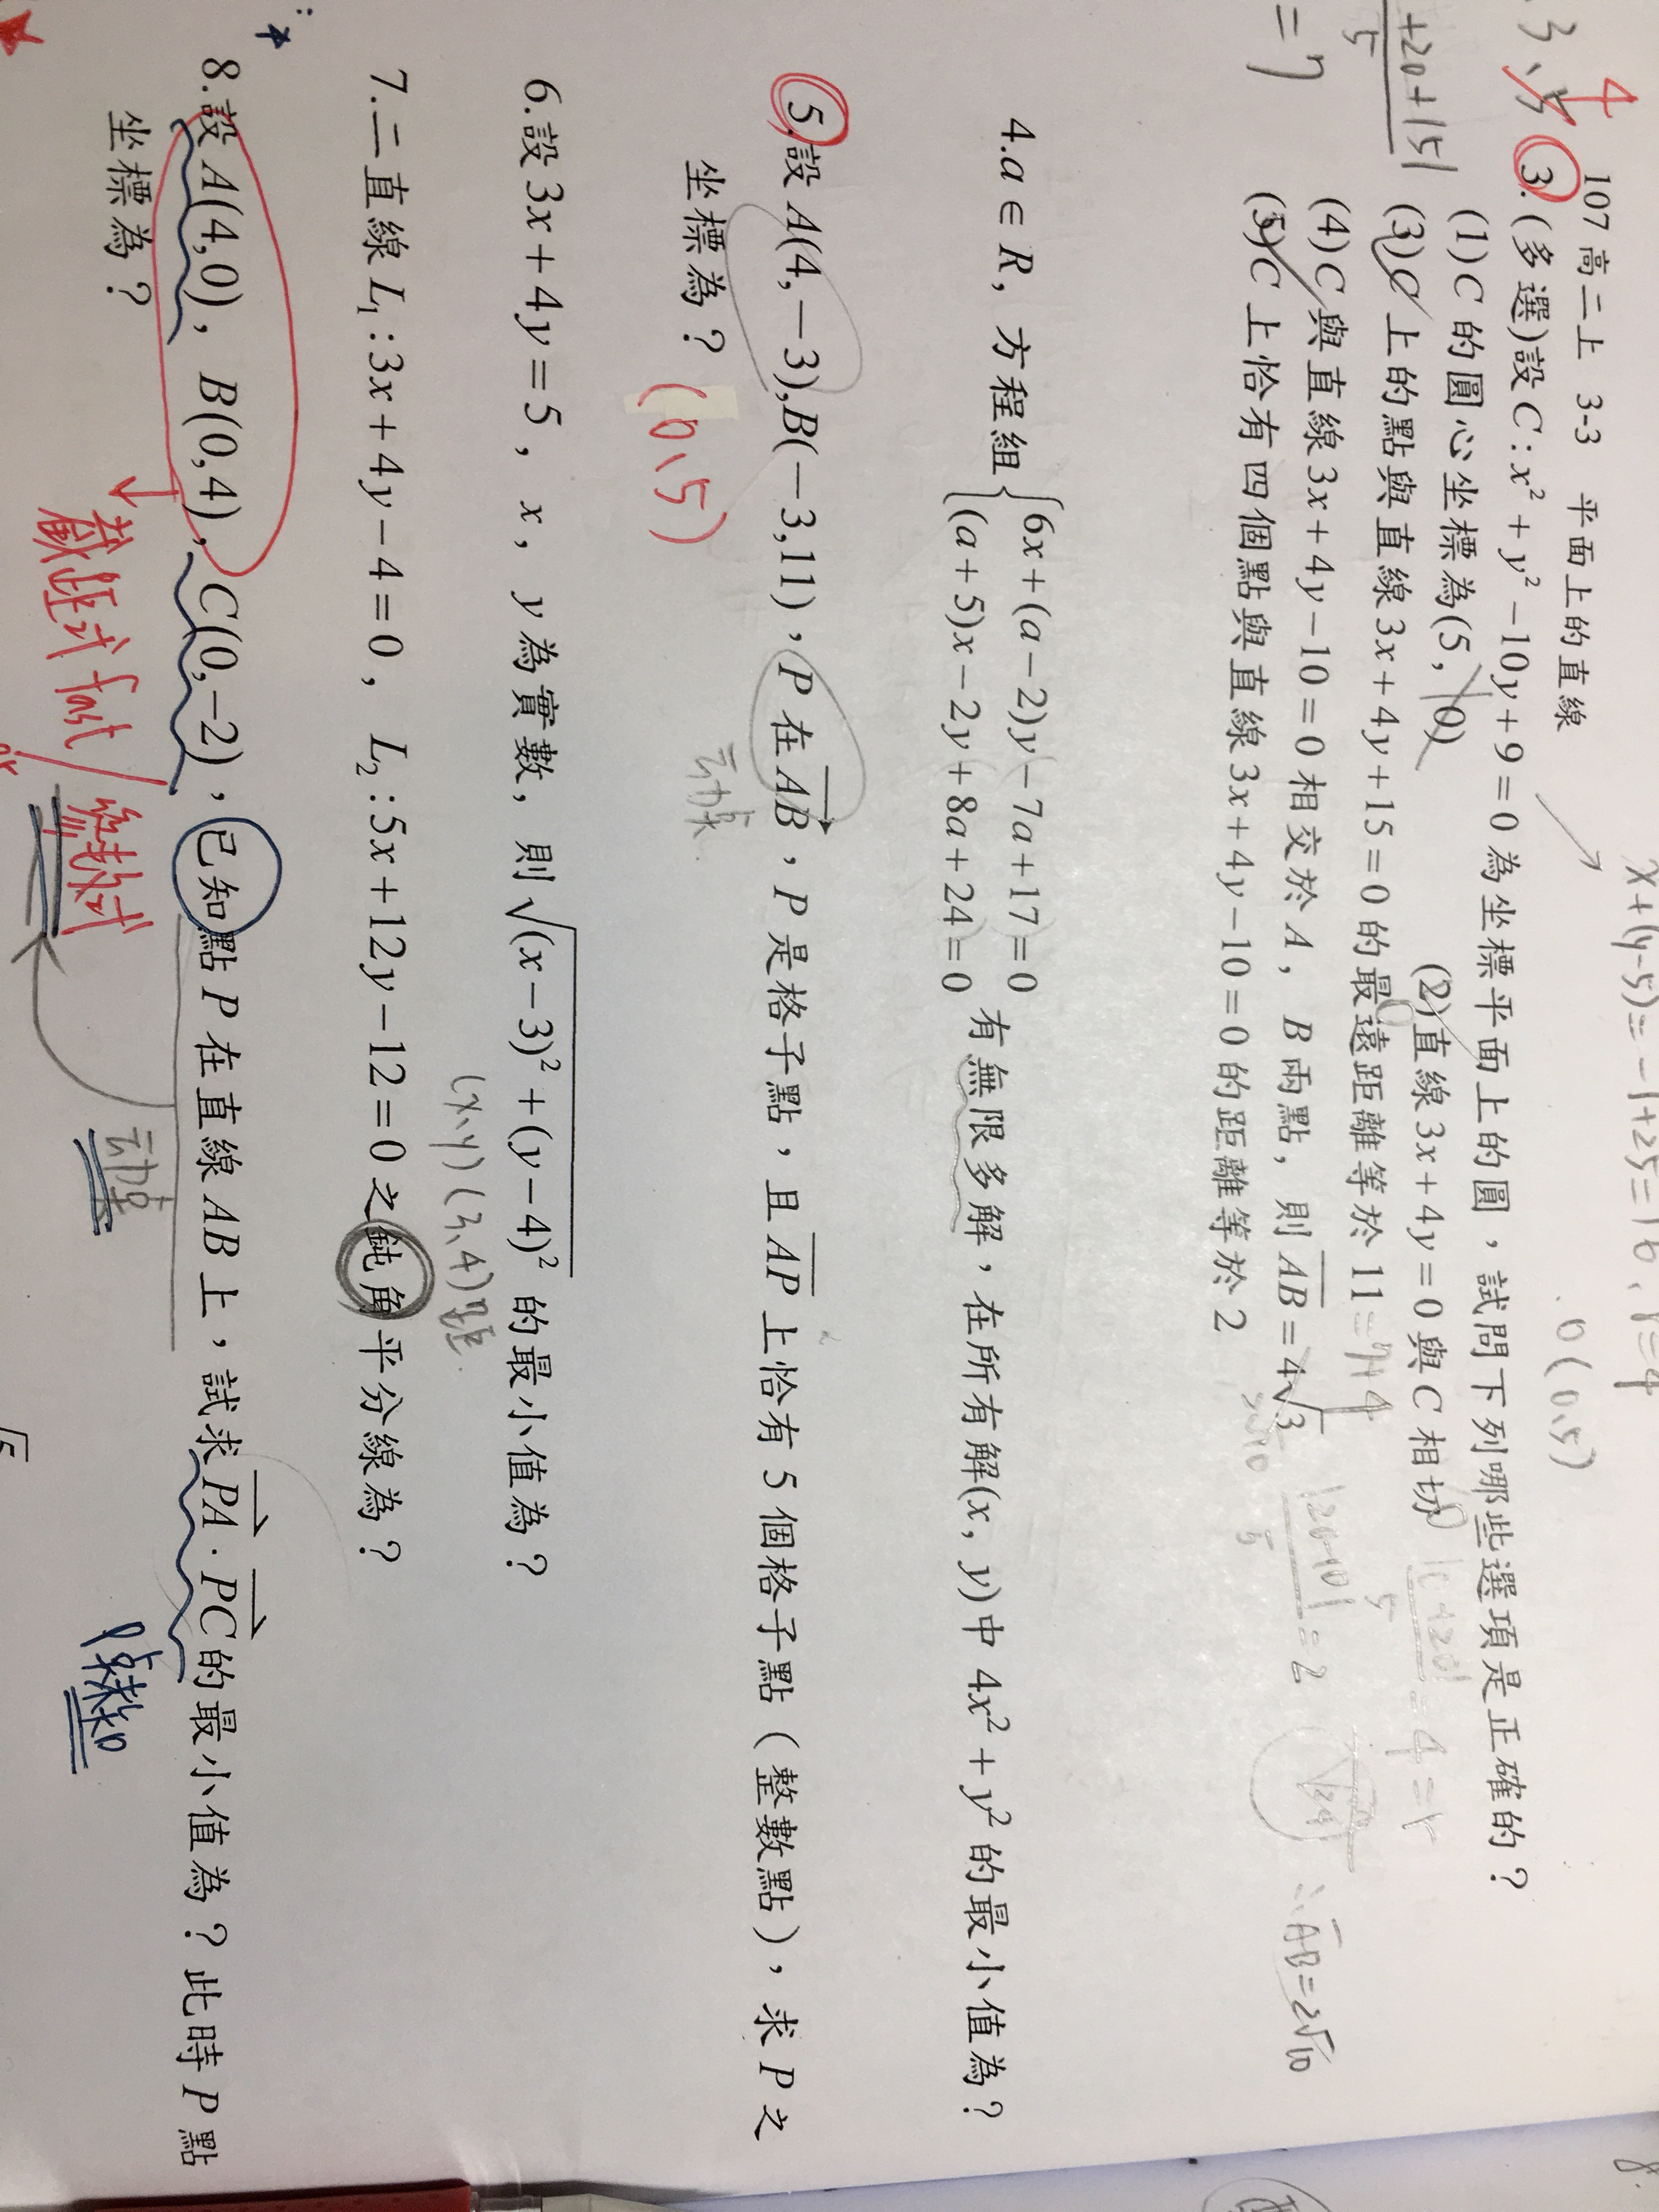 x+(y-5)=-1+25=16, r=4
O(0,5)
107 高二上 3-3 平面上的直線
4
3、
3.(多選)設C:x²+y²-10y+9=0為坐標平面上的圓，試問下列哪些選項是正確的？
(1)C的圓心坐標為(5, 0) (2)直線3x+4y=0與C相切
(3)C上的點與直線3x+4y+15=0的最遠距離等於11 =7+4
(4)C與直線3x+4y-10=0相交於A，B兩點，則AB=4√3
(5)C上恰有四個點與直線3x+4y-10=0的距離等於2
+20+15|
5
=7
|20-10|
5
=2
∴AB=2√10
4.a∈R，方程組{6x+(a-2)y-7a+17=0
(a+5)x-2y+8a+24=0 有無限多解，在所有解(x, y)中4x²+y²的最小值為？
5.設A(4,-3),B(-3,11)，P在AB，P是格子點，且AP上恰有5個格子點（整數點），求P之
坐標為？
(0,5)
动点
6.設3x+4y=5，x，y為實數，則√(x-3)²+(y-4)² 的最小值為？
(x,y)(3,4)距
7.二直線L₁:3x+4y-4=0，L₂:5x+12y-12=0之鈍角平分線為？
8.設A(4,0)，B(0,4)，C(0,-2)，已知點P在直線AB上，試求PA·PC的最小值為？此時P點
坐標為？
截距式 fast
or
參數式
动点
P點未知